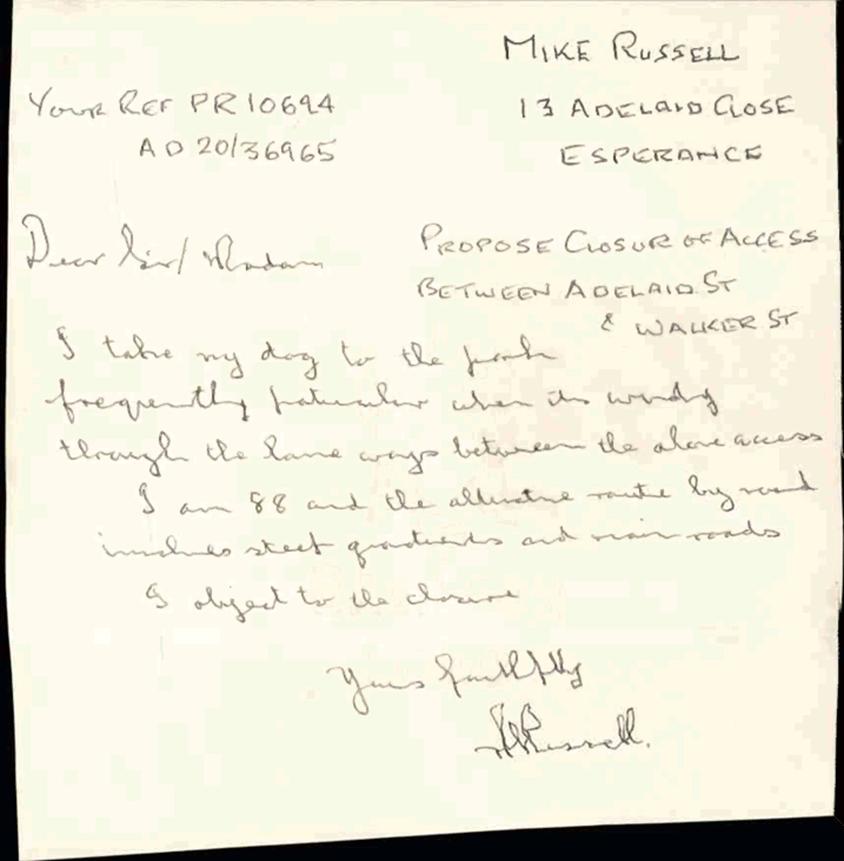 MIKE RUSSELL
YOUR REF PR10694
13 ADELAID CLOSE
AD 20/36965
ESPERANCE
Dear Sir/Madam
PROPOSE CLOSUR OF ACCESS
BETWEEN ADELAID ST
& WALKER ST
I take my dog to the park
frequently paticular when its windy
through the lane ways between the above access
I am 88 and the alternative route by road
involves steep gradients and main roads
I object to the closure
Yours faithfully
Russell.